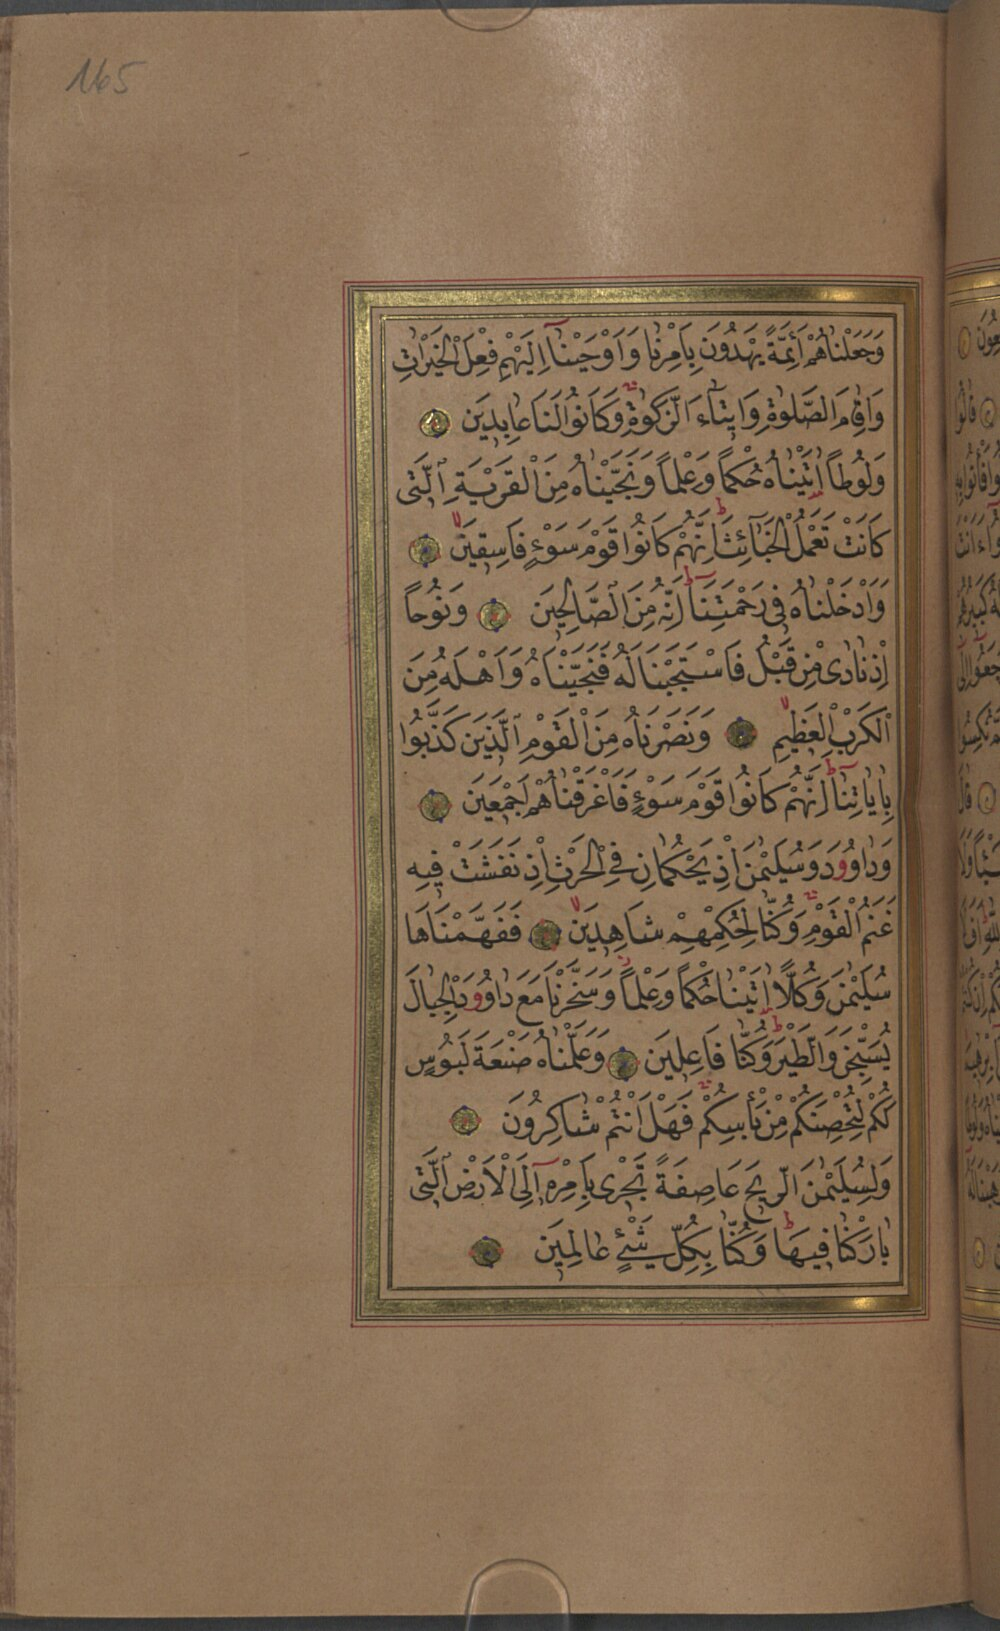 165
وَجَعَلْنَاهُمْ اَئِمَّةً يَهْدُونَ بِاَمْرِنَا وَاَوْحَيْنَٓا اِلَيْهِمْ فِعْلَ الْخَيْرَاتِ
وَاِقَامَ الصَّلٰوةِ وَاٖيتَٓاءَ الزَّكٰوةِ وَكَانُوا لَنَا عَابِدٖينَ
وَلُوطاً اٰتَيْنَاهُ حُكْماً وَعِلْماً وَنَجَّيْنَاهُ مِنَ الْقَرْيَةِ الَّتٖى
كَانَتْ تَعْمَلُ الْخَبَٓائِثَ اِنَّهُمْ كَانُوا قَوْمَ سَوْءٍ فَاسِقٖينَ
وَاَدْخَلْنَاهُ فٖى رَحْمَتِنَا اِنَّهُ مِنَ الصَّالِحٖينَ وَنُوحاً
اِذْ نَادٰى مِنْ قَبْلُ فَاسْتَجَبْنَا لَهُ فَنَجَّيْنَاهُ وَاَهْلَهُ مِنَ
الْكَرْبِ الْعَظٖيمِ وَنَصَرْنَاهُ مِنَ الْقَوْمِ الَّذٖينَ كَذَّبُوا
بِاٰيَاتِنَا اِنَّهُمْ كَانُوا قَوْمَ سَوْءٍ فَاَغْرَقْنَاهُمْ اَجْمَعٖينَ
وَدَاوُودَ وَسُلَيْمٰنَ اِذْ يَحْكُمَانِ فِى الْحَرْثِ اِذْ نَفَشَتْ فٖيهِ
غَنَمُ الْقَوْمِ وَكُنَّا لِحُكْمِهِمْ شَاهِدٖينَ فَفَهَّمْنَاهَا
سُلَيْمٰنَ وَكُلًّا اٰتَيْنَا حُكْماً وَعِلْماً وَسَخَّرْنَا مَعَ دَاوُودَ الْجِبَالَ
يُسَبِّحْنَ وَالطَّيْرَ وَكُنَّا فَاعِلٖينَ وَعَلَّمْنَاهُ صَنْعَةَ لَبُوسٍ
لَكُمْ لِتُحْصِنَكُمْ مِنْ بَأْسِكُمْ فَهَلْ اَنْتُمْ شَاكِرُونَ
وَلِسُلَيْمٰنَ الرّٖيحَ عَاصِفَةً تَجْرٖى بِاَمْرِهٖٓ اِلَى الْاَرْضِ الَّتٖى
بَارَكْنَا فٖيهَا وَكُنَّا بِكُلِّ شَىْءٍ عَالِمٖينَ